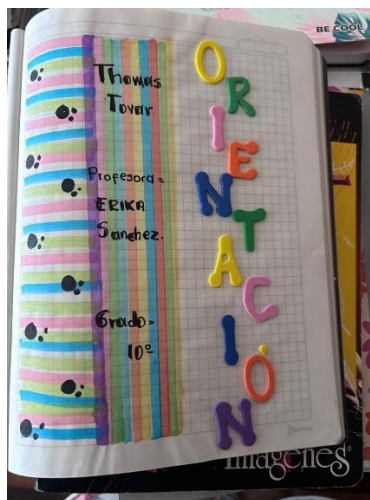 BE COOL
Thomas
Tovar
Profesora=
ERIKA
Sanchez.
Grado=
10º
ORIENTACIÓN
Imagenes